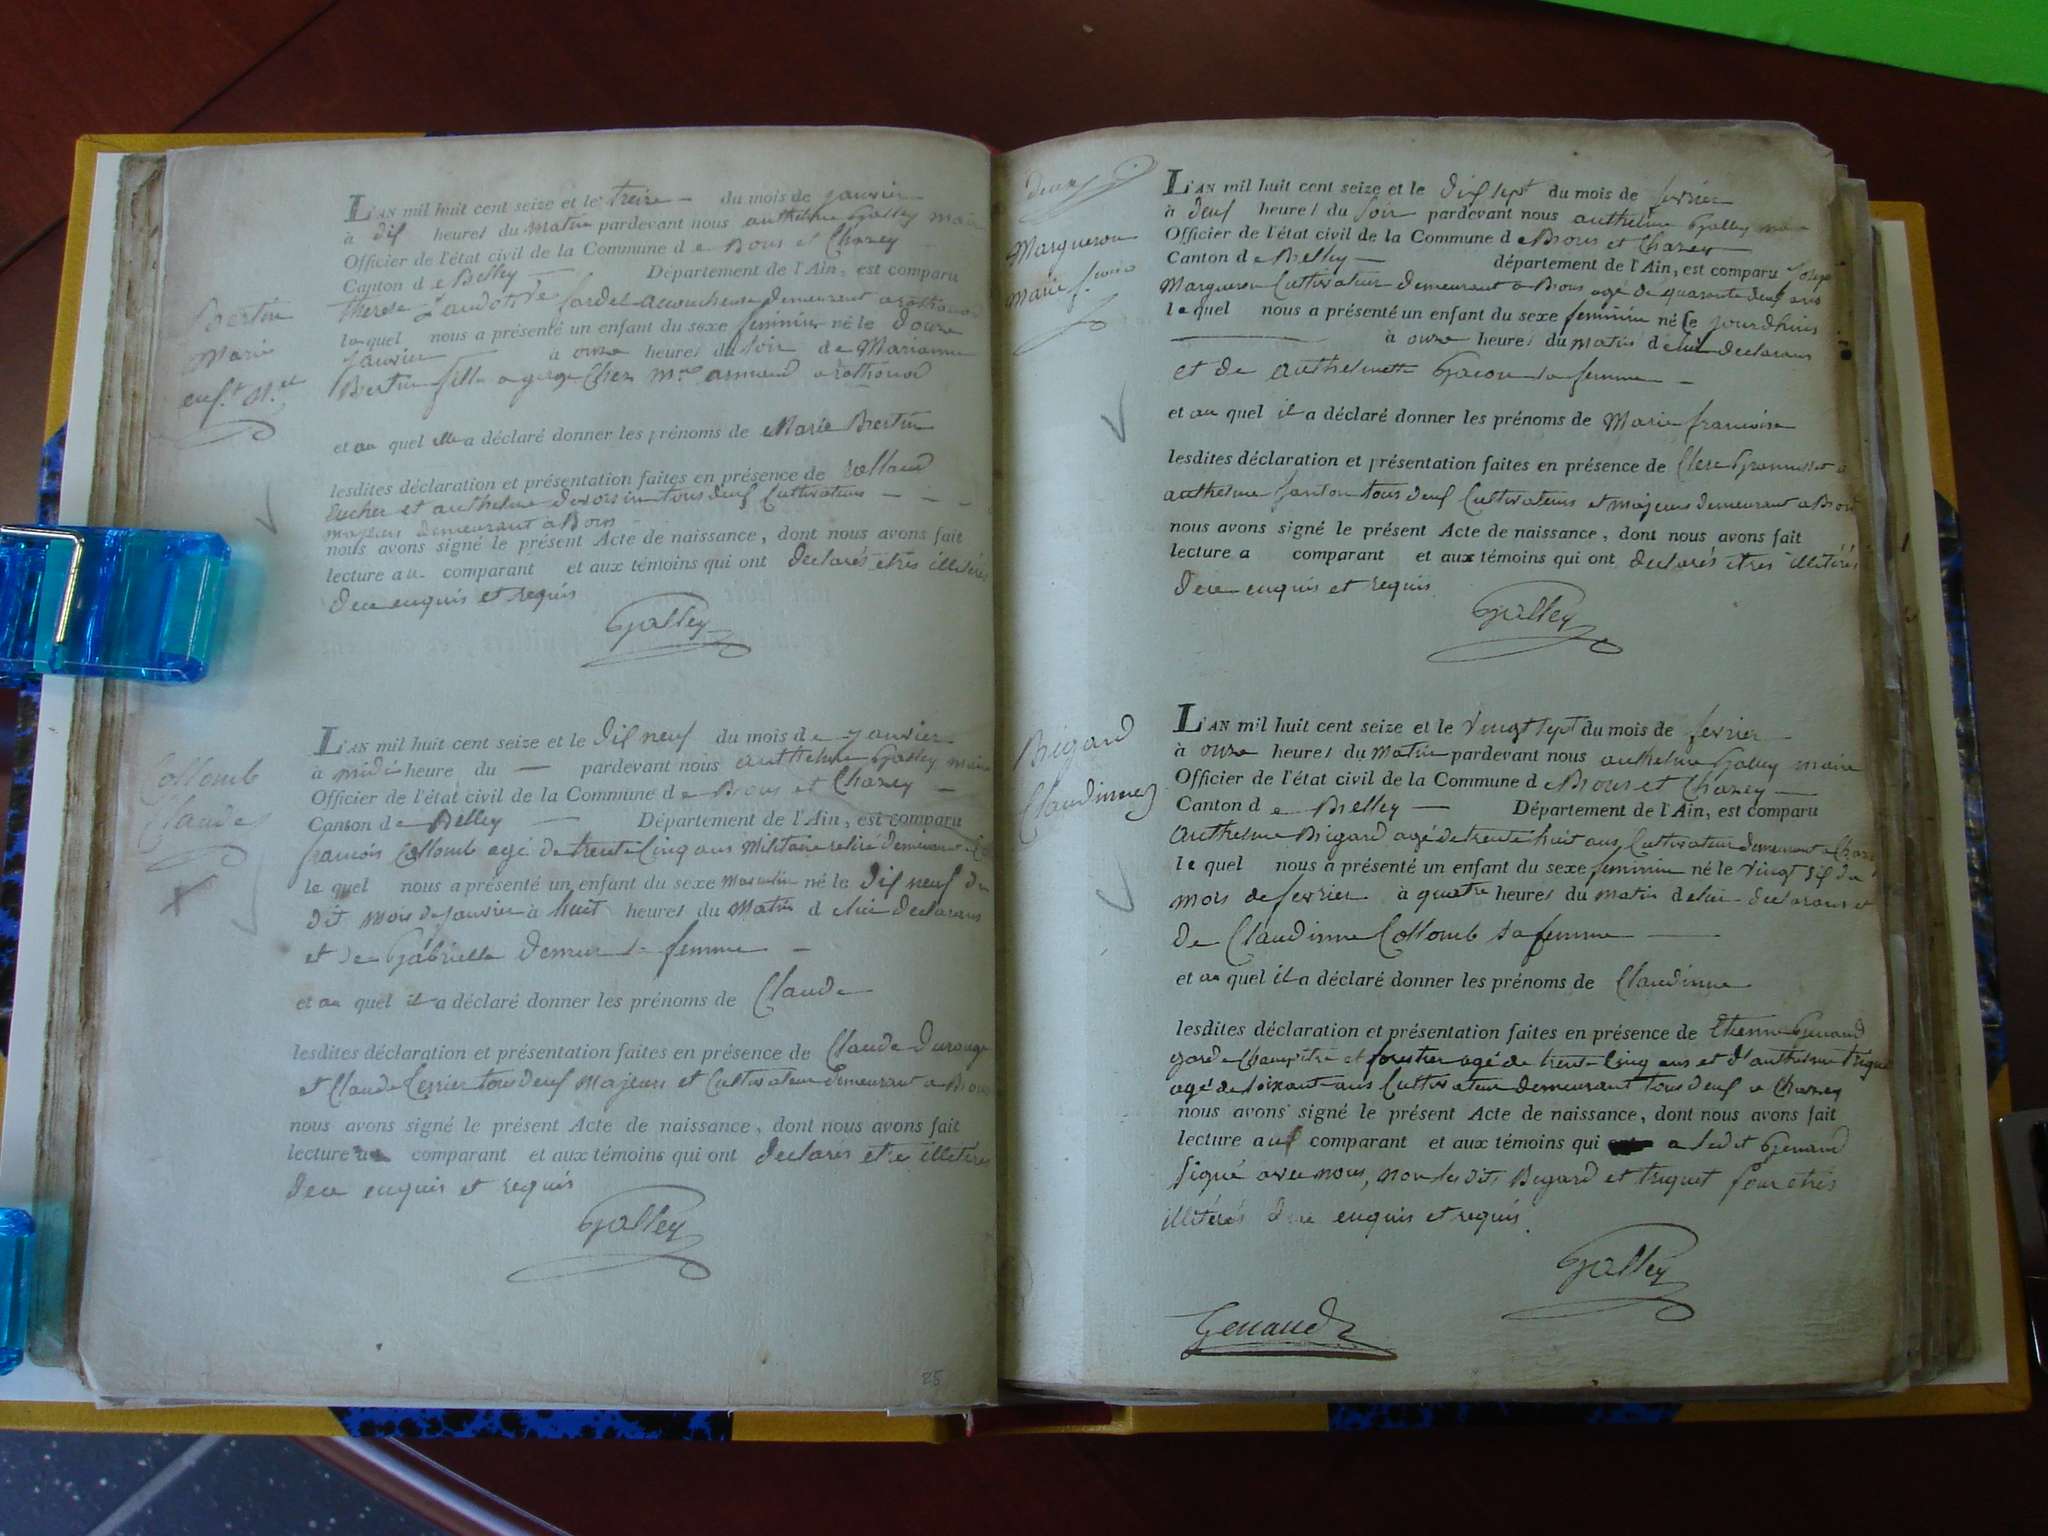 L'AN mil huit cent seize et le treize du mois de janvier
à dix heures du Matin pardevant nous anthelme Galley maire
Officier de l'état civil de la Commune de Bons et Chazey
Canton de Belley Département de l'Ain, est comparu
Therese accoucheuse demeurant a
laquel nous a présenté un enfant du sexe feminin né le douze
janvier à onze heures du soir de Marianne
Bertin fille chez
et au quel elle a déclaré donner les prénoms de Marie Bertin
lesdites déclaration et présentation faites en présence de
et anthelme tous deux Cultivateurs
majeurs demeurant a Bons
nous avons signé le présent Acte de naissance, dont nous avons fait
lecture au comparant et aux témoins qui ont declarés etres illiterés
de ce enquis et requis
Galley
Bertin
Marie
enf.t N.el
L'AN mil huit cent seize et le dix neuf du mois de janvier
à midi heure du pardevant nous anthelme Galley maire
Officier de l'état civil de la Commune de Bons et Chazey
Canton de Belley Département de l'Ain, est comparu
francois Collomb agé de trente Cinq ans Militaire retiré demeurant
le quel nous a présenté un enfant du sexe Masculin né le dix neuf du
dit mois de janvier à huit heures du Matin de lui declarans
et de Gabrielle sa femme
et au quel il a déclaré donner les prénoms de Claude
lesdites déclaration et présentation faites en présence de Claude
et Claude tous deux Majeurs et Cultivateur demeurant a Bons
nous avons signé le présent Acte de naissance, dont nous avons fait
lecture au comparant et aux témoins qui ont declarés etre illiterés
de ce enquis et requis
Galley
Collomb
Claude
25
deux
Margueron
Marie
L'AN mil huit cent seize et le dix sept du mois de fevrier
à deux heures du soir pardevant nous anthelme Galley maire
Officier de l'état civil de la Commune de Bons et Chazey
Canton de Belley département de l'Ain, est comparu
Margueron Cultivateur demeurant a Bons agé de quarante deux ans
le quel nous a présenté un enfant du sexe feminin né le jourdhuis
à onze heures du matin de lui declarans
et de anthelmette Gacon sa femme
et au quel il a déclaré donner les prénoms de Marie francoise
lesdites déclaration et présentation faites en présence de
anthelme tous deux Cultivateurs et majeurs demeurant a Bons
nous avons signé le présent Acte de naissance, dont nous avons fait
lecture a comparant et aux témoins qui ont declarés etres illiterés
de ce enquis et requis
Galley
Bigard
Claudinne
L'AN mil huit cent seize et le vingt sept du mois de fevrier
à onze heures du Matin pardevant nous anthelme Galley maire
Officier de l'état civil de la Commune de Bons et Chazey
Canton de Belley Département de l'Ain, est comparu
Anthelme Bigard agé de trente huit ans Cultivateur demeurant a Chazey
le quel nous a présenté un enfant du sexe feminin né le vingt six du
mois de fevrier à quatre heures du matin de lui declarans et
de Claudinne Collomb sa femme
et au quel il a déclaré donner les prénoms de Claudinne
lesdites déclaration et présentation faites en présence de Etienne Genaud
garde Champetre et forestier agé de trente Cinq ans et d'anthelme triquet
agé de soixante ans Cultivateur demeurant tous deux a Chazey
nous avons signé le présent Acte de naissance, dont nous avons fait
lecture aux comparant et aux témoins qui a ledit Genaud
signé avec nous, non les dits Bigard et triquet pour etres
illiterés de ce enquis et requis.
Galley
Genaud